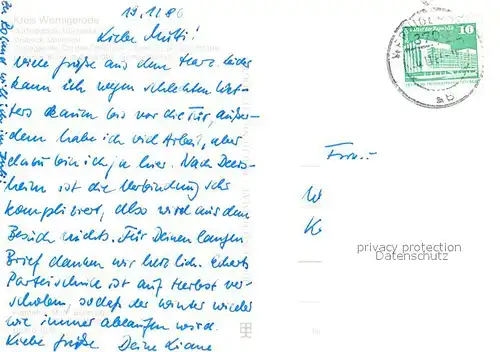 19.11.86
Kreis Wernigerode
Liebe Mutti!
viele Grüße aus dem Harz. Leider
kann ich wegen schlechten Wet-
ters kaum bis vor die Tür, außer-
dem habe ich viel Arbeit, aber
dazu bin ich ja hier. Nach Deers-
heim ist die Verbindung sehr
kompliziert, also wird aus dem
Besuch nichts. Für Deinen langen
Brief danken wir herzlich.
Parteischule ist auf Herbst ver-
schoben, sodaß der Winter wieder
wie immer ablaufen wird.
Liebe Grüße Deine Liane
10
Frau
W
K
privacy protection
Datenschutz